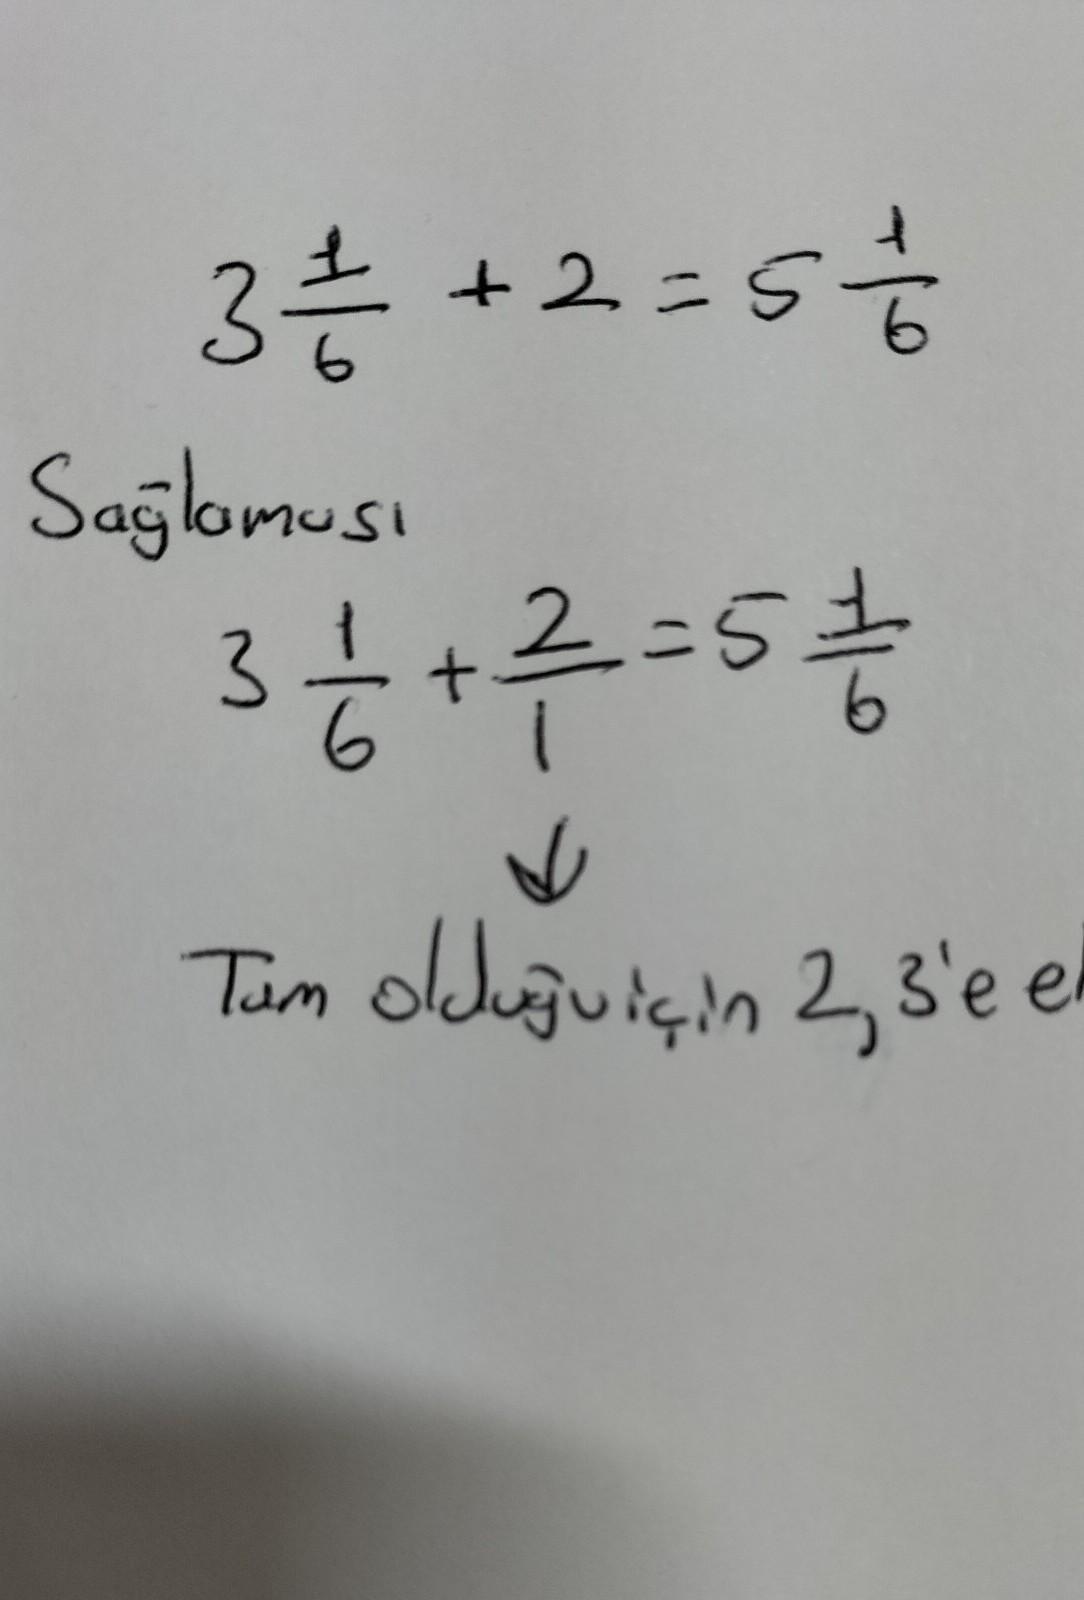 3 1/6 + 2 = 5 1/6
Sağlaması
3 1/6 + 2/1 = 5 1/6
↓
Tam olduğu için 2, 3'e